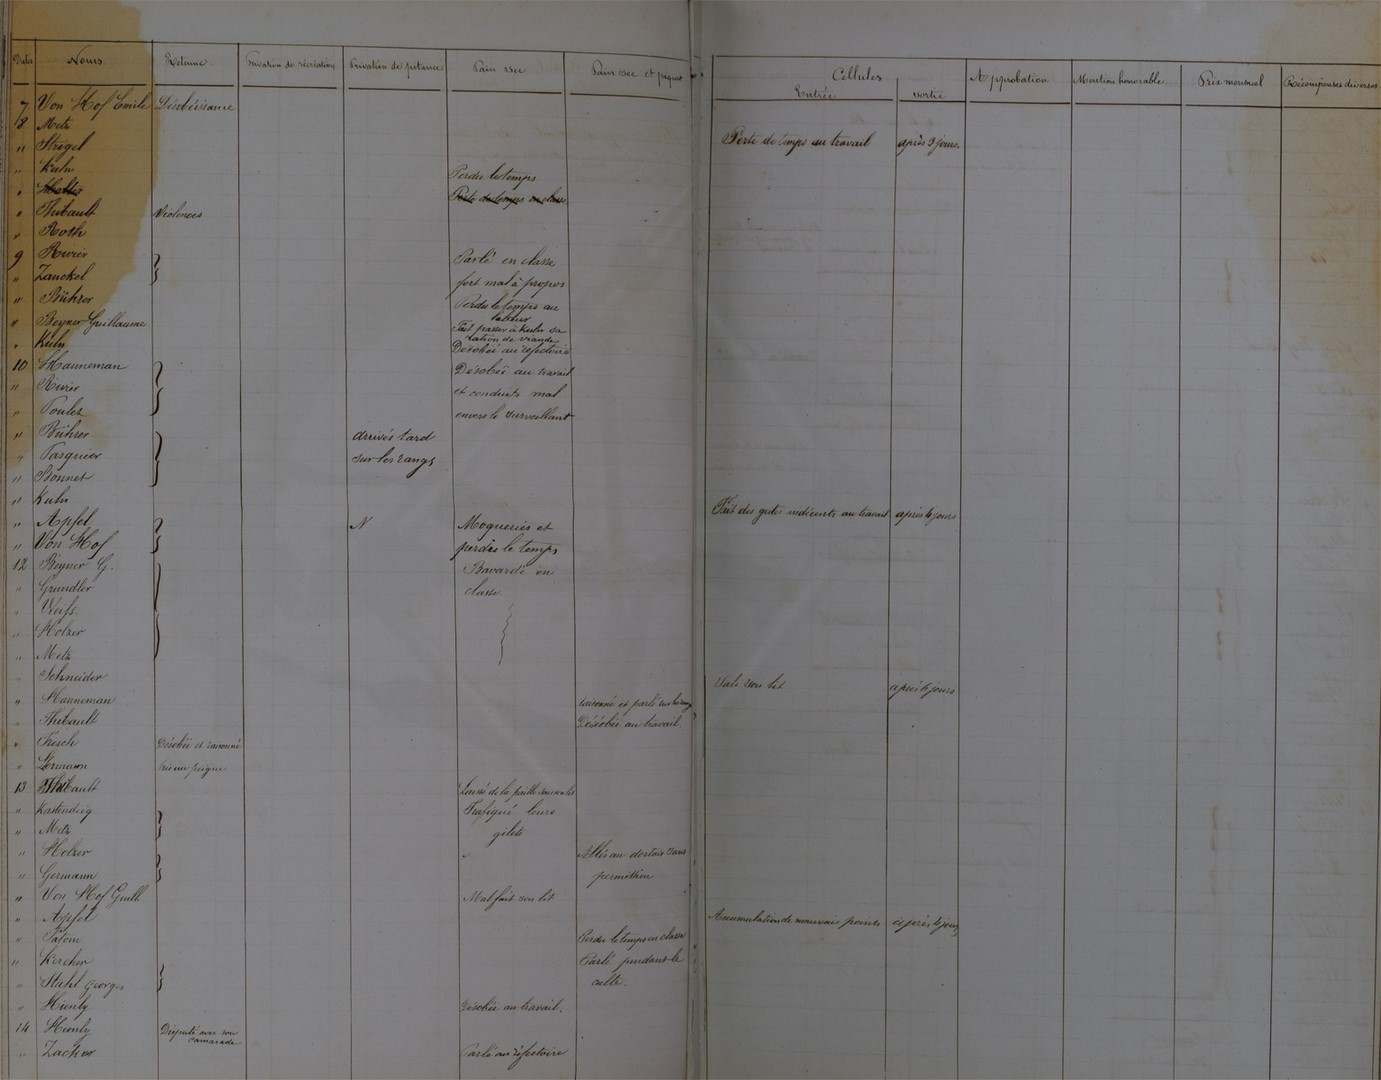 Dates Noms Retenue Privation de récréation Privation de pitance Pain sec Pain sec et piquet Cellules Approbation Mention honorable Prix mensuel Récompenses diverses
Entrée sortie
7 Von Hof Emile Désobéissance
8 Metz
" Strigel Perte de temps au travail après 3 jours.
" Kuhn Perdu le temps
" Perte de temps en classe
" Thibault Violences
" Roth
9 Rivier Parlé en classe
" Zanckel fort mal à propos
" Bührer Perdu le temps au
labeur
" Beyner Guillaume Fait passer à Kuhn sa
ration de viande
" Kuhn Désobéi au réfectoire
10 Hanneman Désobéi au travail
" Rivier et conduits mal
" Poulet envers le surveillant
" Bührer arrivés tard
" Pasquier sur les rangs
" Bonnet
" Kuhn Fait des gestes indécents au travail après 4 jours
" Apfel N Moqueries et
" Von Hof perdu le temps
12 Beyner G. Bavardé en
" Grundler classe.
" Weiss.
" Holzer
" Metz
" Schneider Sali son lit après 6 jours
" Hanneman raisonné et parlé sur les rangs
" Thibault Désobéi au travail.
" Fresch Désobéi et raisonné
" Hermann
13 Thibault Laissé de la paille sous son lit
" Kastendeig Trafiqué leurs
" Metz gilets
" Holzer Allés au dortoir sans
" Germann permission
" Von Hof Guill. Mal fait son lit
" Apfel Accumulation de mauvais points après 4 jours
" Perdu le temps en classe
" Kercher Parlé pendant le
" Stahl Georges culte.
" Hienly Désobéi au travail.
14 Hienly Disputé avec son
camarade
" Zacher Parlé au réfectoire